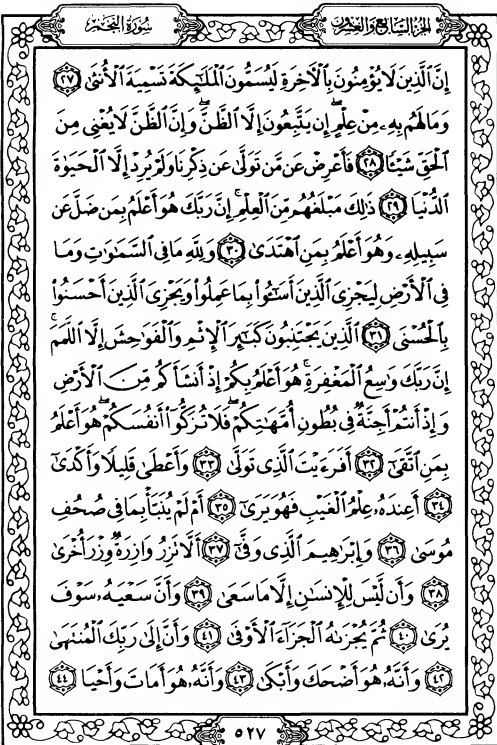 سُورَةُ النَّجْمِ
الجُزْءُ السَّابِعُ وَالعِشْرُونَ
إِنَّ ٱلَّذِينَ لَا يُؤْمِنُونَ بِٱلْأَخِرَةِ لَيُسَمُّونَ ٱلْمَلَٰٓئِكَةَ تَسْمِيَةَ ٱلْأُنثَىٰ ٢٧
وَمَا لَهُم بِهِۦ مِنْ عِلْمٍ ۖ إِن يَتَّبِعُونَ إِلَّا ٱلظَّنَّ ۖ وَإِنَّ ٱلظَّنَّ لَا يُغْنِى مِنَ
ٱلْحَقِّ شَيْـًٔا ٢٨ فَأَعْرِضْ عَن مَّن تَوَلَّىٰ عَن ذِكْرِنَا وَلَمْ يُرِدْ إِلَّا ٱلْحَيَوٰةَ
ٱلدُّنْيَا ٢٩ ذَٰلِكَ مَبْلَغُهُم مِّنَ ٱلْعِلْمِ ۚ إِنَّ رَبَّكَ هُوَ أَعْلَمُ بِمَن ضَلَّ عَن
سَبِيلِهِۦ وَهُوَ أَعْلَمُ بِمَنِ ٱهْتَدَىٰ ٣٠ وَلِلَّهِ مَا فِى ٱلسَّمَٰوَٰتِ وَمَا
فِى ٱلْأَرْضِ لِيَجْزِىَ ٱلَّذِينَ أَسَٰٓـُٔوا۟ بِمَا عَمِلُوا۟ وَيَجْزِىَ ٱلَّذِينَ أَحْسَنُوا۟
بِٱلْحُسْنَى ٣١ ٱلَّذِينَ يَجْتَنِبُونَ كَبَٰٓئِرَ ٱلْإِثْمِ وَٱلْفَوَٰحِشَ إِلَّا ٱللَّمَمَ ۚ
إِنَّ رَبَّكَ وَٰسِعُ ٱلْمَغْفِرَةِ ۚ هُوَ أَعْلَمُ بِكُمْ إِذْ أَنشَأَكُم مِّنَ ٱلْأَرْضِ
وَإِذْ أَنتُمْ أَجِنَّةٌ فِى بُطُونِ أُمَّهَٰتِكُمْ ۖ فَلَا تُزَكُّوٓا۟ أَنفُسَكُمْ ۖ هُوَ أَعْلَمُ
بِمَنِ ٱتَّقَىٰٓ ٣٢ أَفَرَءَيْتَ ٱلَّذِى تَوَلَّىٰ ٣٣ وَأَعْطَىٰ قَلِيلًا وَأَكْدَىٰٓ
٣٤ أَعِندَهُۥ عِلْمُ ٱلْغَيْبِ فَهُوَ يَرَىٰٓ ٣٥ أَمْ لَمْ يُنَبَّأْ بِمَا فِى صُحُفِ
مُوسَىٰ ٣٦ وَإِبْرَٰهِيمَ ٱلَّذِى وَفَّىٰٓ ٣٧ أَلَّا تَزِرُ وَازِرَةٌ وِزْرَ أُخْرَىٰ
٣٨ وَأَن لَّيْسَ لِلْإِنسَٰنِ إِلَّا مَا سَعَىٰ ٣٩ وَأَنَّ سَعْيَهُۥ سَوْفَ
يُرَىٰ ٤٠ ثُمَّ يُجْزَىٰهُ ٱلْجَزَآءَ ٱلْأَوْفَىٰ ٤١ وَأَنَّ إِلَىٰ رَبِّكَ ٱلْمُنتَهَىٰ
٤٢ وَأَنَّهُۥ هُوَ أَضْحَكَ وَأَبْكَىٰ ٤٣ وَأَنَّهُۥ هُوَ أَمَاتَ وَأَحْيَا ٤٤
٥٢٧